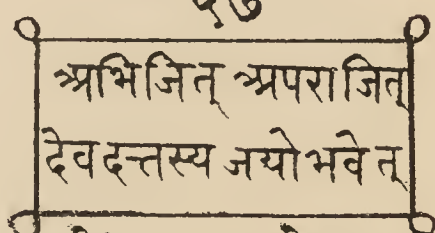 ५७
अभिजित् अपराजित्
देवदत्तस्य जयोभवेत्